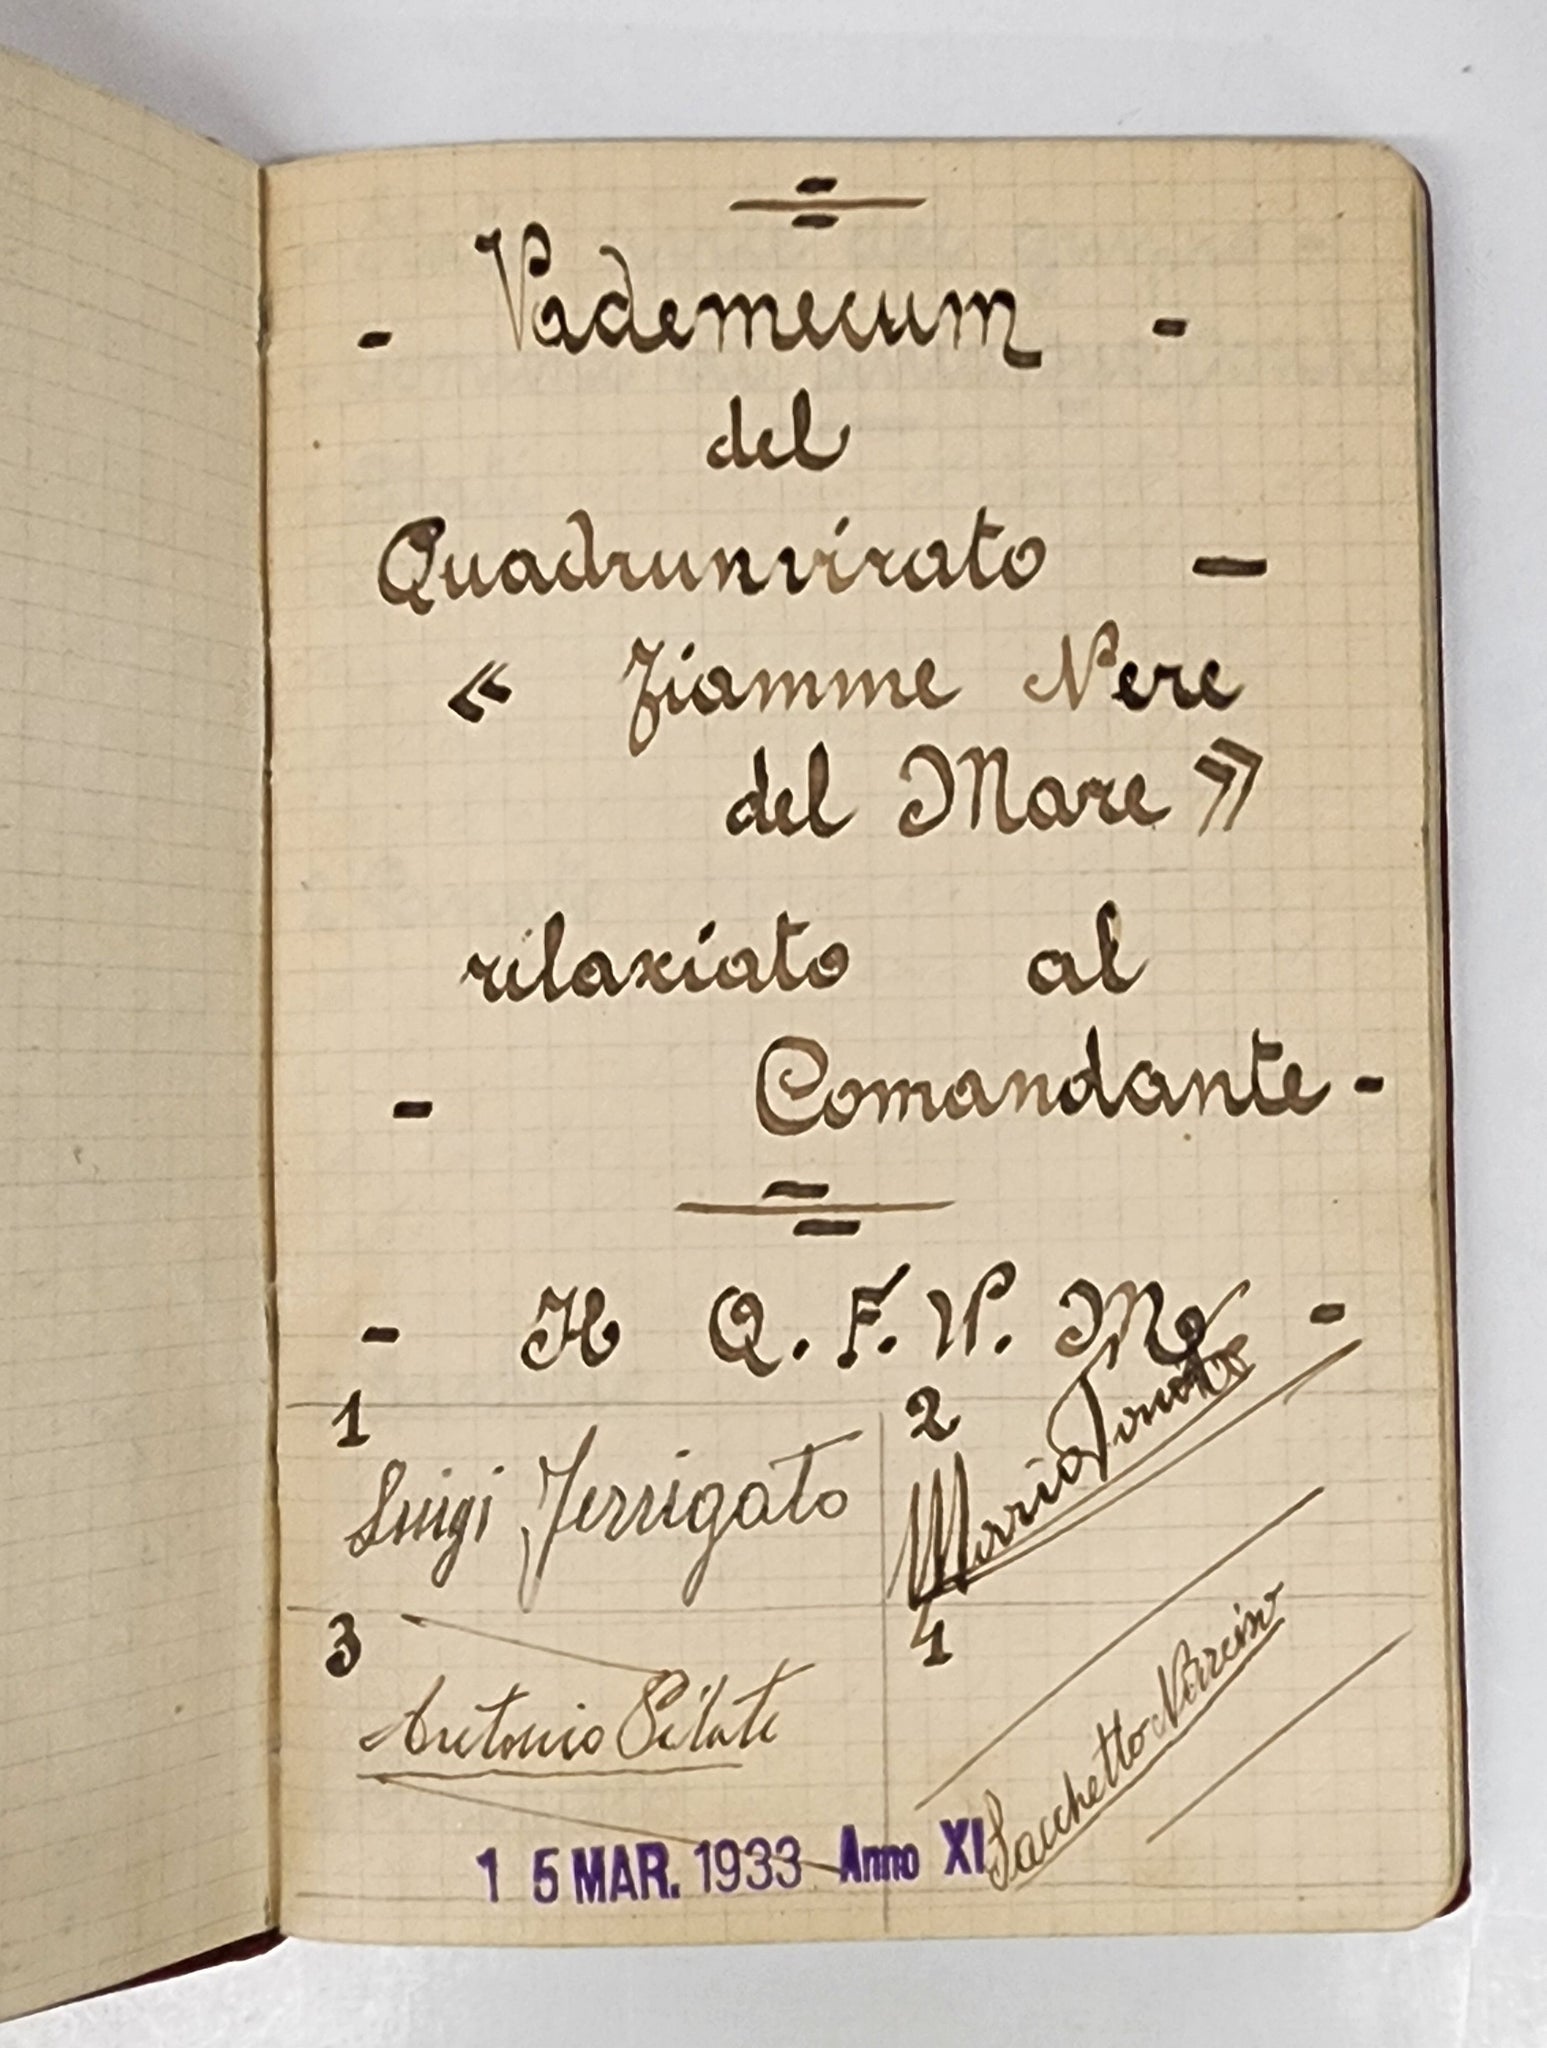 - Vademecum -
del
Quadrunvirato -
« Fiamme Nere
del Mare »
rilaxiato al
- Comandante -
- Il Q. F. N. M. -
1
Luigi Ferrigato
2
Mario
3
Antonio Pilati
4
Sacchetto Narciso
15 MAR. 1933 Anno XI